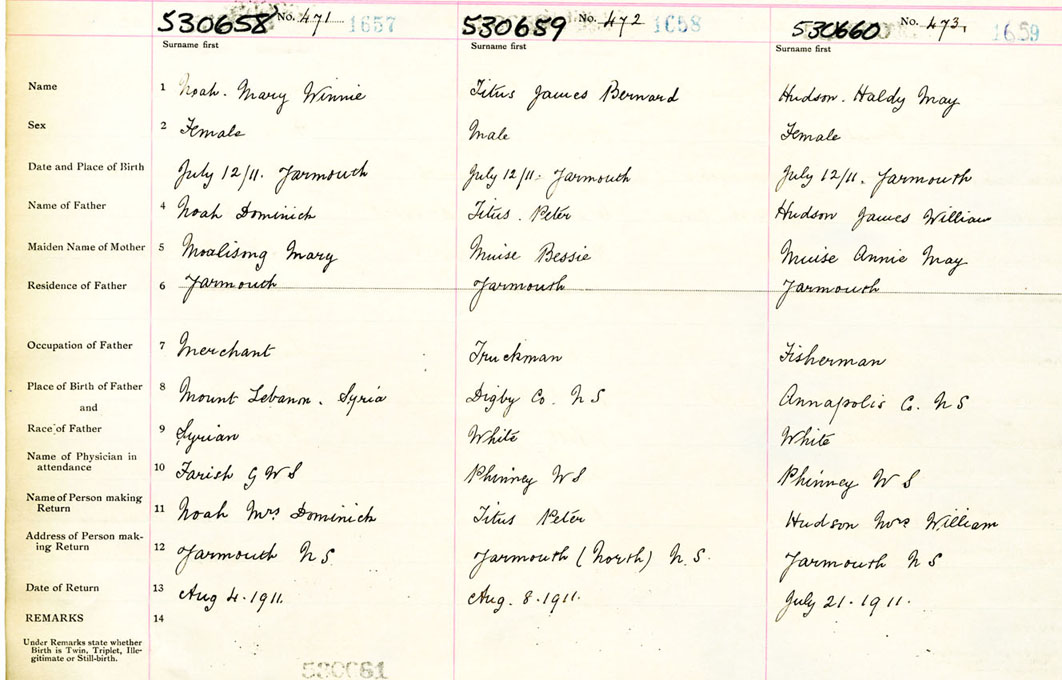 530658 No. 471 1657 530659 No. 472 1658 530660 No. 473 1659
Surname first Surname first Surname first
Name 1 Noah. Mary Winnie Titus James Bernard Hudson. Haldy May
Sex 2 Female Male Female
Date and Place of Birth 3 July 12/11. Yarmouth July 12/11. Yarmouth July 12/11. Yarmouth
Name of Father 4 Noah Dominich Titus. Peter Hudson James William
Maiden Name of Mother 5 Moalisong Mary Muise Bessie Muise Annie May
Residence of Father 6 Yarmouth Yarmouth Yarmouth
Occupation of Father 7 Merchant Truckman Fisherman
Place of Birth of Father 8 Mount Lebanon. Syria Digby Co. N S Annapolis Co. N S
and
Race of Father 9 Syrian White White
Name of Physician in
attendance 10 Farish G W S Phinney W S Phinney W S
Name of Person making
Return 11 Noah Mrs Dominich Titus Peter Hudson Mrs William
Address of Person mak-
ing Return 12 Yarmouth N S. Yarmouth (North) N. S. Yarmouth N S
Date of Return 13 Aug 4. 1911. Aug. 8. 1911. July 21. 1911.
REMARKS 14
Under Remarks state whether
Birth is Twin, Triplet, Ille-
gitimate or Still-birth.
530661